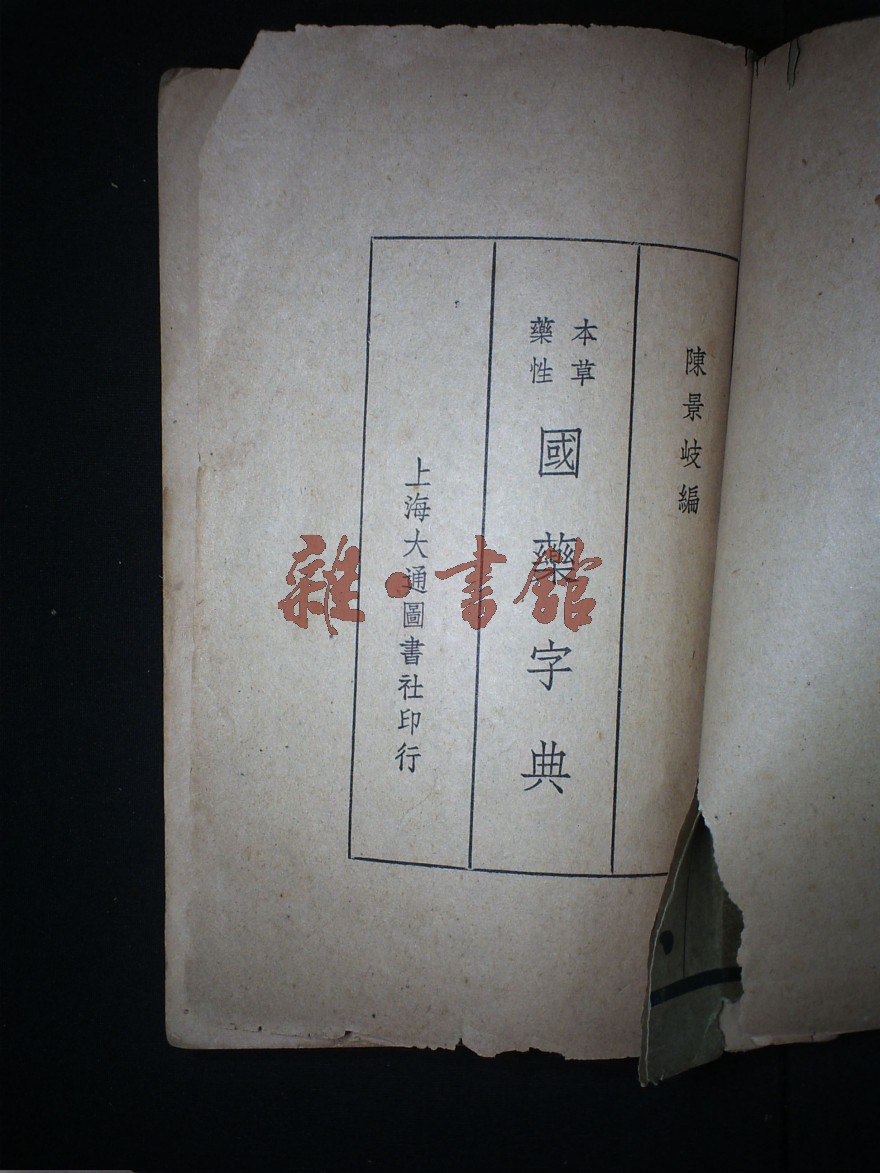 陳景岐編
本草
藥性
國藥字典
上海大通圖書社印行
雜·書館